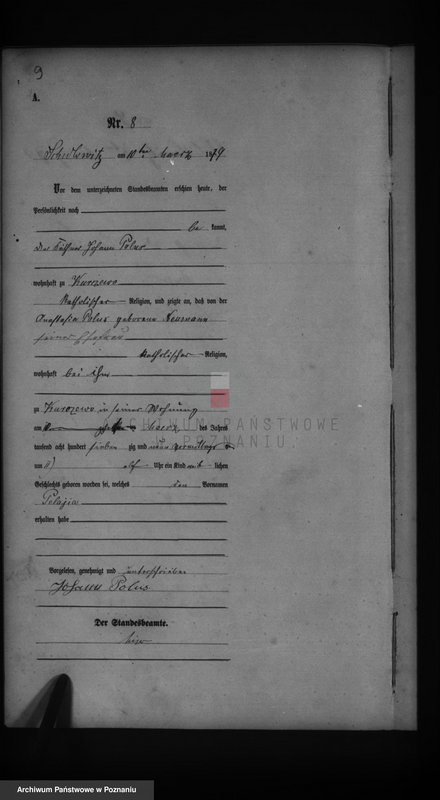 9
A.
Nr. 8
am 10ten Maerz 1879
Vor dem unterzeichneten Standesbeamten erschien heute, der
Persönlichkeit nach
be kannt,
Der Johann Polus
wohnhaft zu Kurozewo
katholischer Religion, und zeigte an, daß von der
Anastasia Polus geborene Neumann
seiner Ehefrau
katholischer Religion,
wohnhaft bei ihm
zu Kurozewo in seiner Wohnung
am Maerz des Jahres
tausend acht hundert sieben zig und neun Vormittags
um elf Uhr ein Kind weib lichen
Geschlechts geboren worden sei, welches den Vornamen
Pelagia
erhalten habe
Vorgelesen, genehmigt und unterschrieben
Johann Polus
Der Standesbeamte.
ARCHIWUM PAŃSTWOWE
W POZNANIU
Archiwum Państwowe w Poznaniu